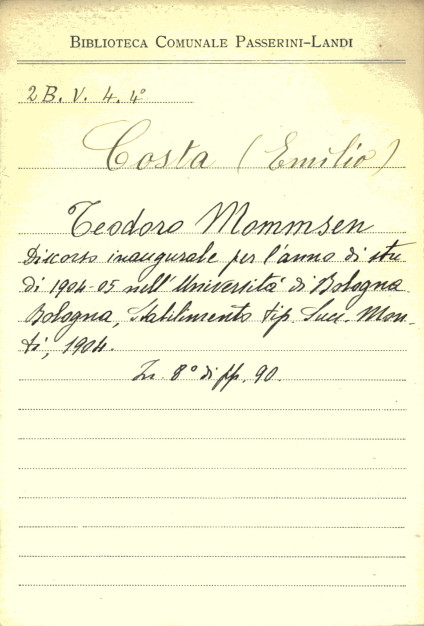 BIBLIOTECA COMUNALE PASSERINI-LANDI
2 B. V. 4. 4º
Costa (Emilio)
Teodoro Mommsen
Discorso inaugurale per l'anno di stu
di 1904-05 nell'Università di Bologna
Bologna, Stabilimento tip. Succ. Mon-
ti, 1904.
In 8º di pp. 90.